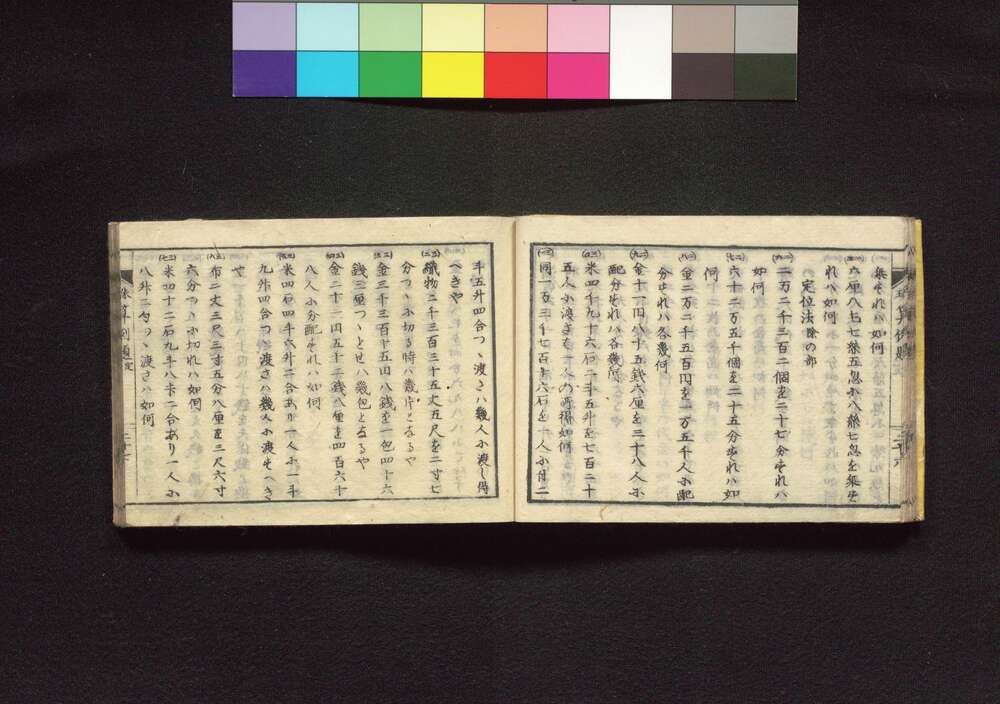 乗すれハ如何
六厘八毛七糸五忽小八糸七忽を乗す
れハ如何
の定位法除の部
二万二千三百二個を二十七分すれハ
如何
六十二万五千個を二十五分すれハ如
何
金二万二千五百円を一万五千人小配
分すれハ各幾何
金十一円八十五銭六厘を三十八人小
配分すれハ各幾何
米四千九十六石二斗五升を七百二十
五人小渡す
同一万三千七百十六石を十人小付二
斗五升四合つゝ渡さハ幾人小渡し得
へきや
織物二千三百三十五丈五尺を二寸七
分つゝ小切る時ハ幾片となるや
金三千三百十五円八銭を一包四十六
銭三厘つゝとせハ幾包となるや
金二十二円五十二銭八厘を四百六十
八人小分配すれハ如何
米四石四斗六升二合あり一人小一斗
九升四合つゝ渡さハ幾人小渡すへき
や
布二丈三尺三寸五分八厘を三尺六寸
六分つゝ小切れハ如何
米四十二石九斗八升二合あり一人小
八升二勺つゝ渡さハ如何
珠算例題